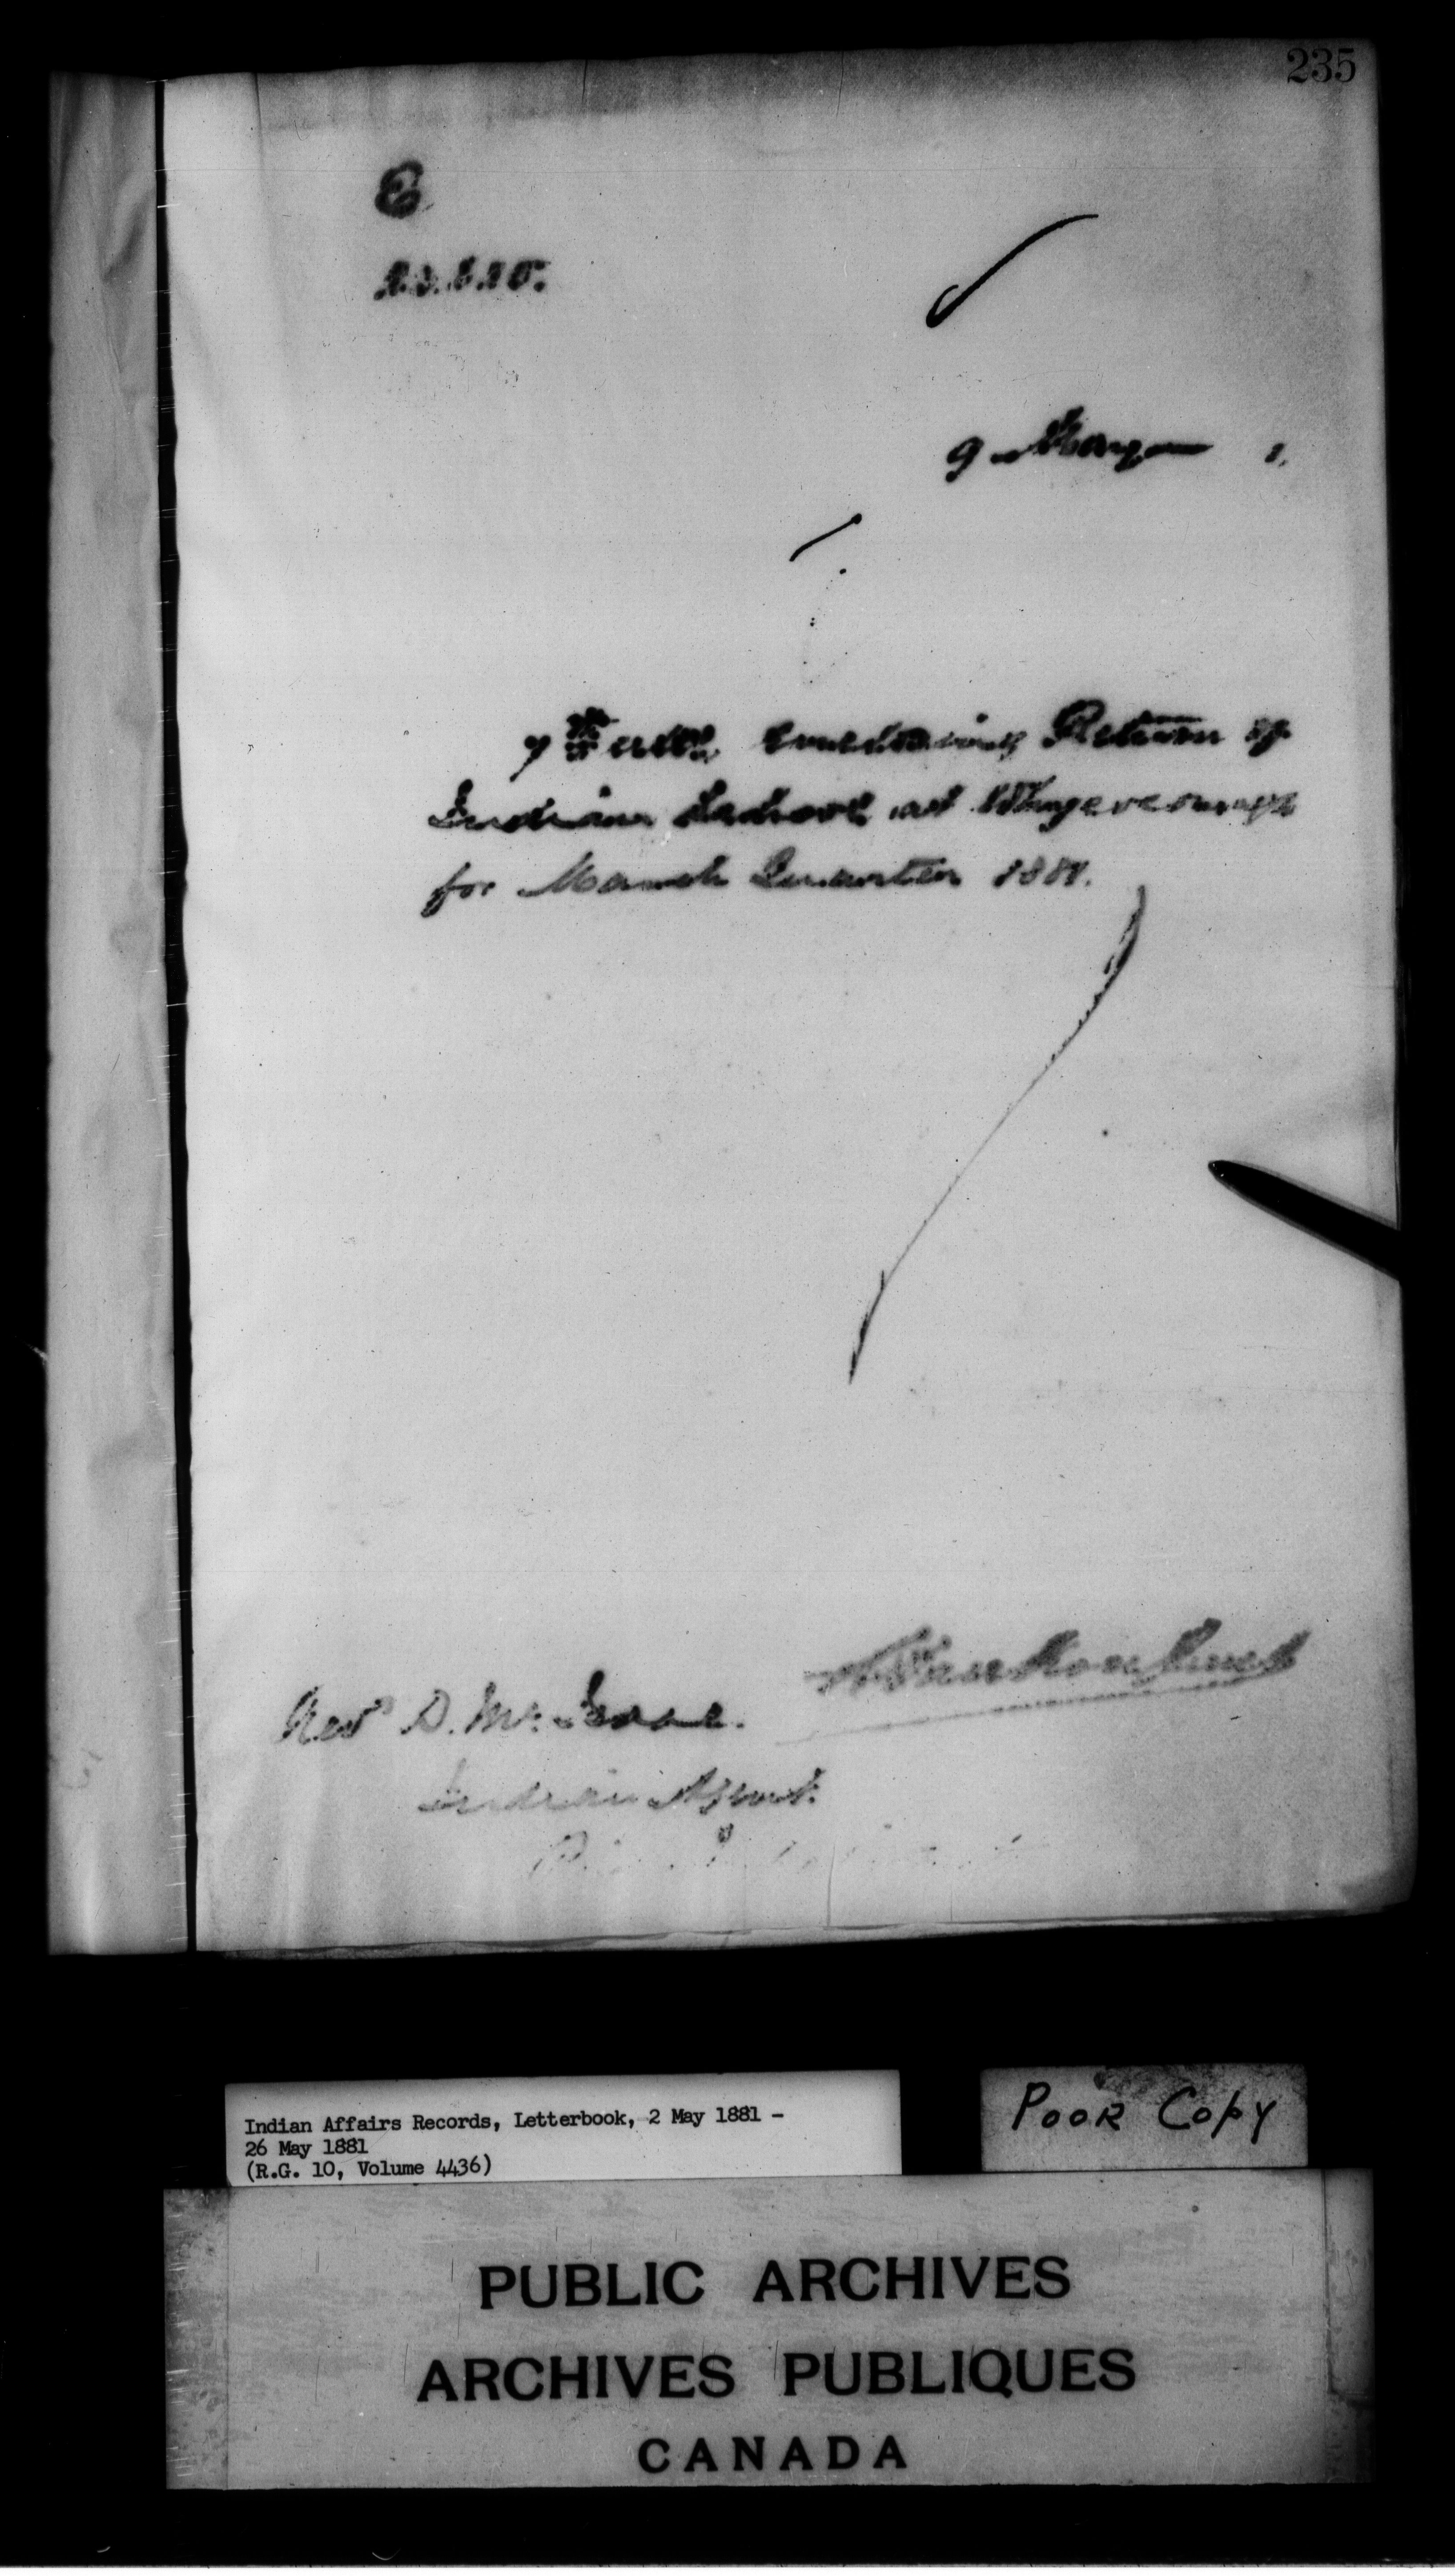 235
E
9 May 1,
7th ulto enclosing Return of
Indian School at Whycocomagh
for March Quarter 1881.
L VanKoughnet
Revd D. McIsaac.
Indian Agent.
Indian Affairs Records, Letterbook, 2 May 1881 -
26 May 1881
(R.G. 10, Volume 4436)
POOR COPY
PUBLIC ARCHIVES
ARCHIVES PUBLIQUES
CANADA